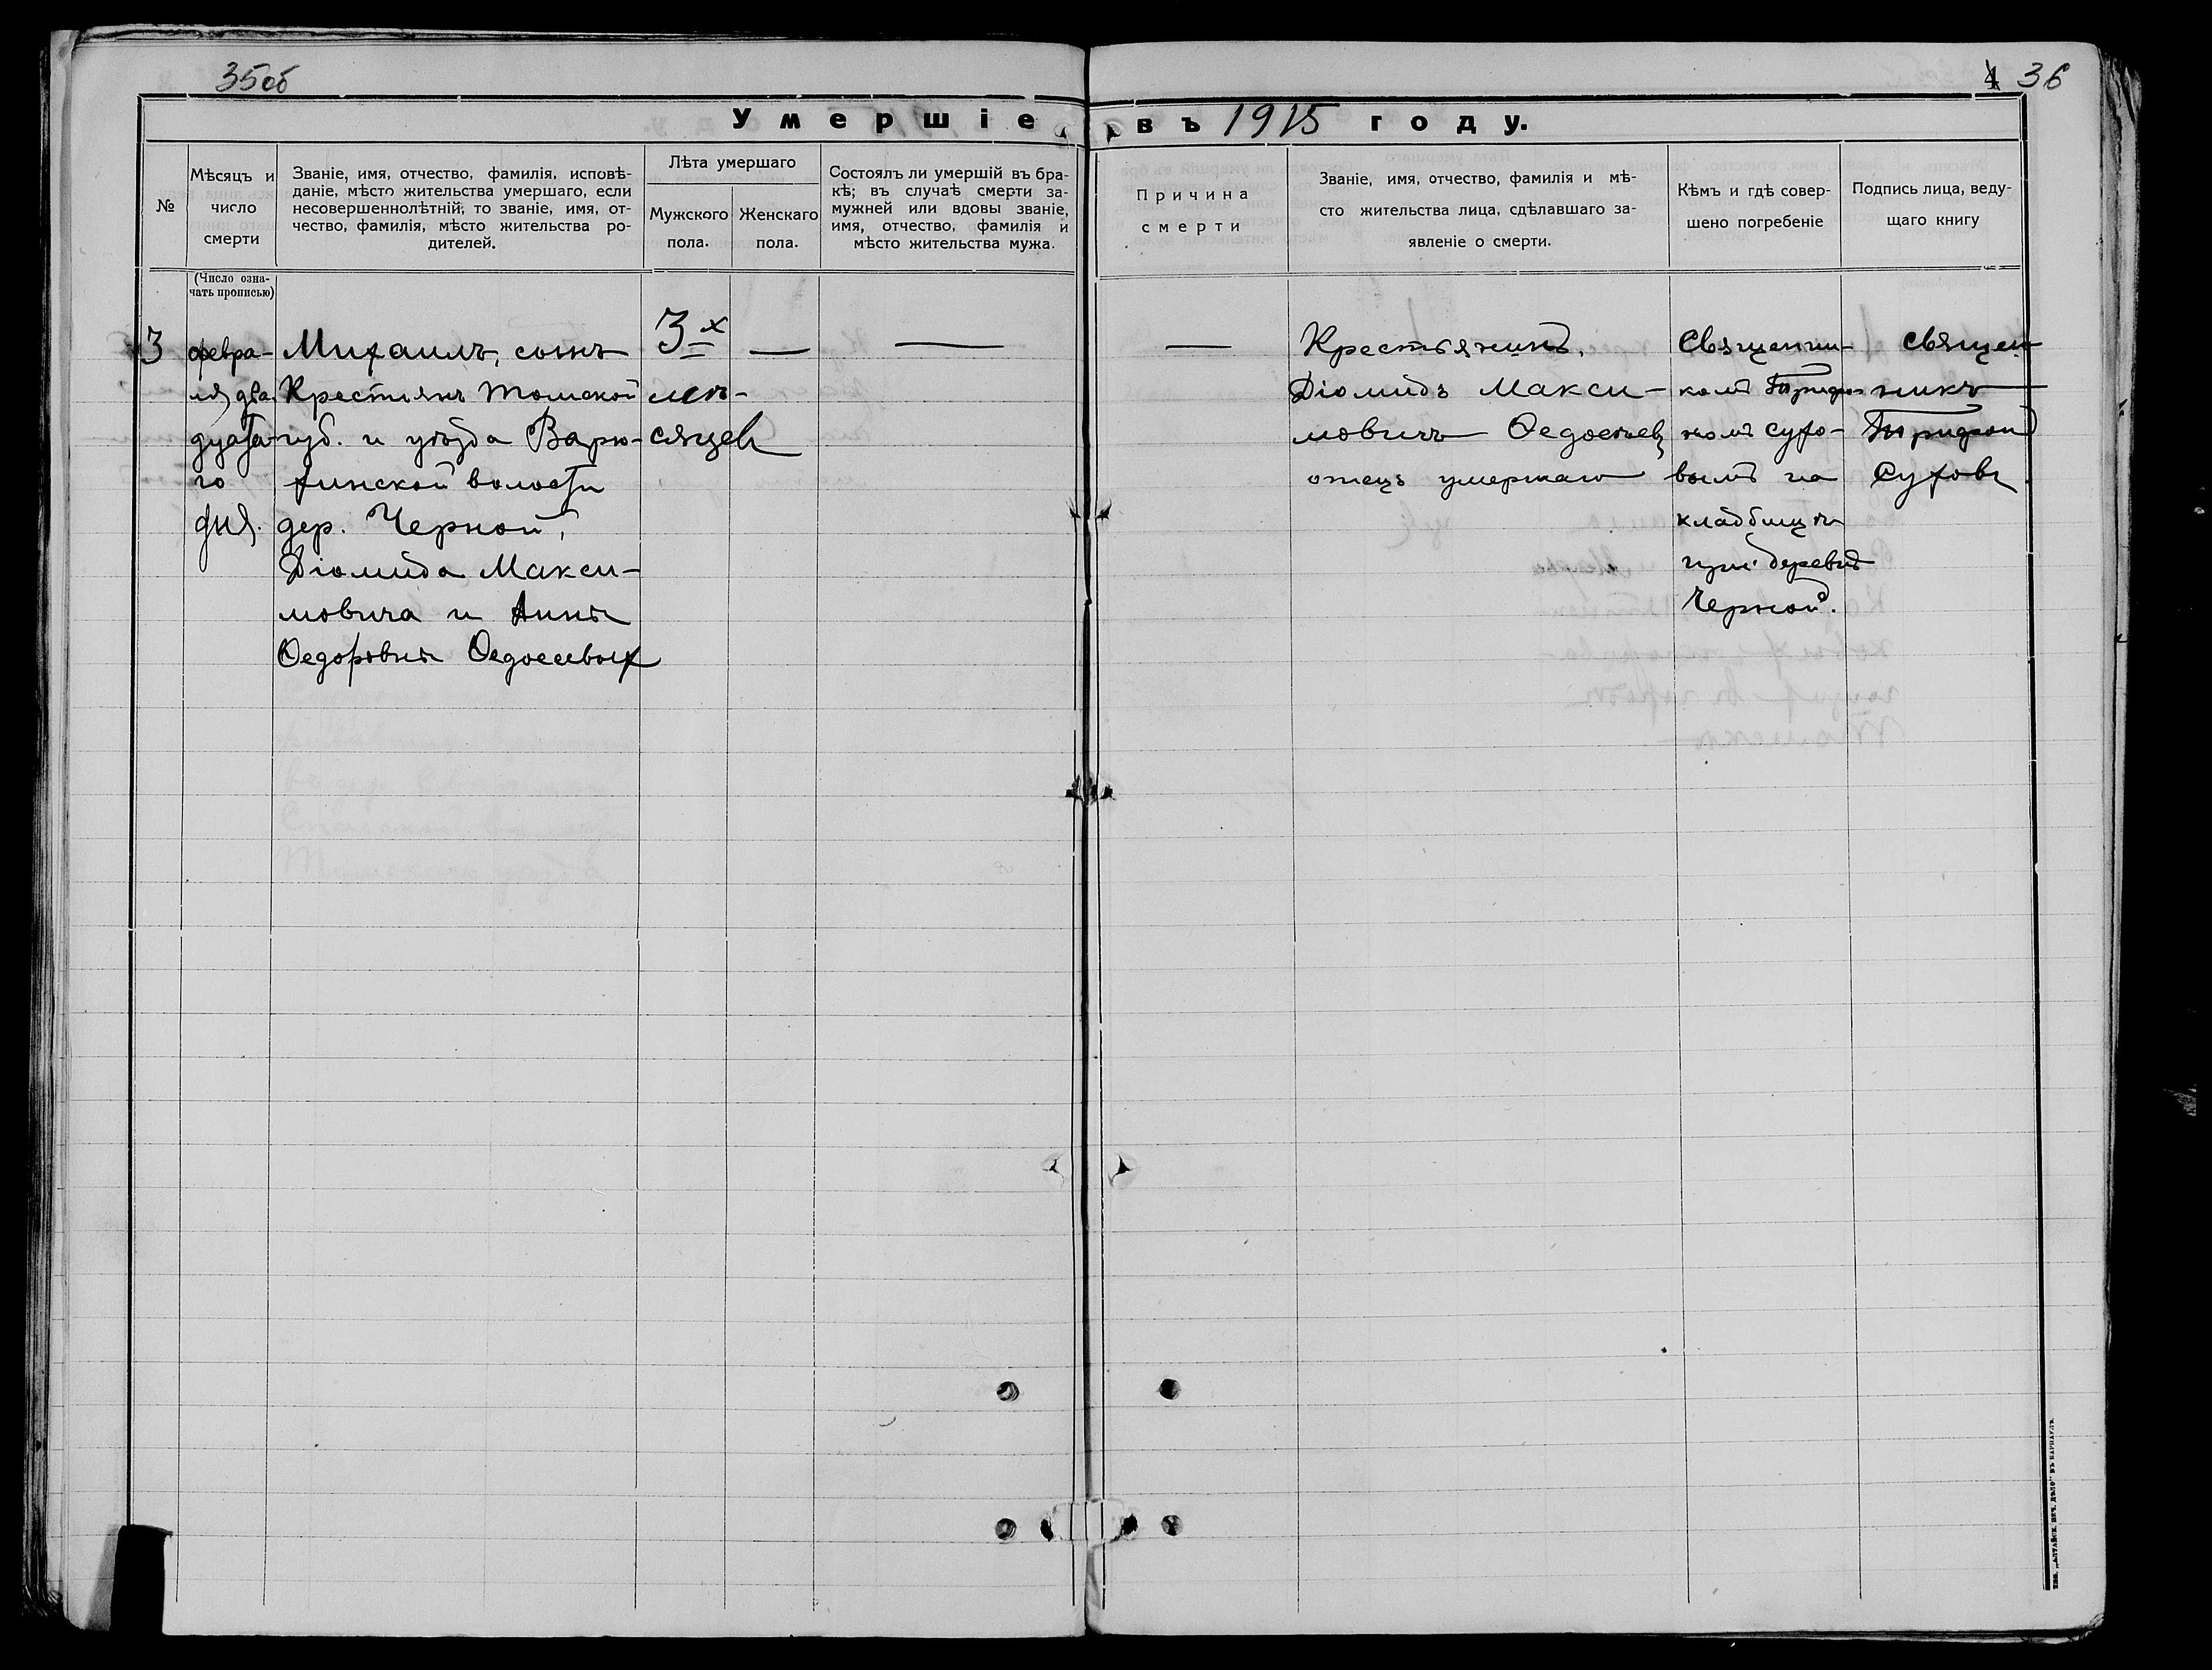 35об
4 36
Умершіе въ 1915 году.
№
Мѣсяцъ и
число
смерти
Званіе, имя, отчество, фамилія, исповѣ-
даніе, мѣсто жительства умершаго, если
несовершеннолѣтній; то званіе, имя, от-
чество, фамилія, мѣсто жительства ро-
дителей.
Лѣта умершаго
Мужского
пола.
Женскаго
пола.
Состоялъ ли умершій въ бра-
кѣ; въ случаѣ смерти за-
мужней или вдовы званіе,
имя, отчество, фамилія и
мѣсто жительства мужа.
Причина
смерти
Званіе, имя, отчество, фамилія и мѣ-
сто жительства лица, сдѣлавшаго за-
явленіе о смерти.
Кѣмъ и гдѣ совер-
шено погребеніе
Подпись лица, веду-
щаго книгу
(Число озна-
чать прописью)
3
февра-
ля два
дцата-
го
дня.
Михаилъ, сынъ
Крестьянъ Томской
губ. и уѣзда Варю-
хинской волости
дер. Черной,
Діомида Макси-
мовича и Анны
Ѳедоровны Ѳедосеевых
3х
мѣ-
сяцев
—
—
—
Крестьянинъ,
Діомидъ Макси-
мовичъ Ѳедосѣевъ
отецъ умершаго
Священни-
комъ Трифо-
номъ Сухо-
вымъ на
кладбищѣ
при деревнѣ
Черной.
Священ
никъ
Трифон
Суховъ
Изд. „Алтайск. Печ. Дѣло" въ Барнаулѣ.